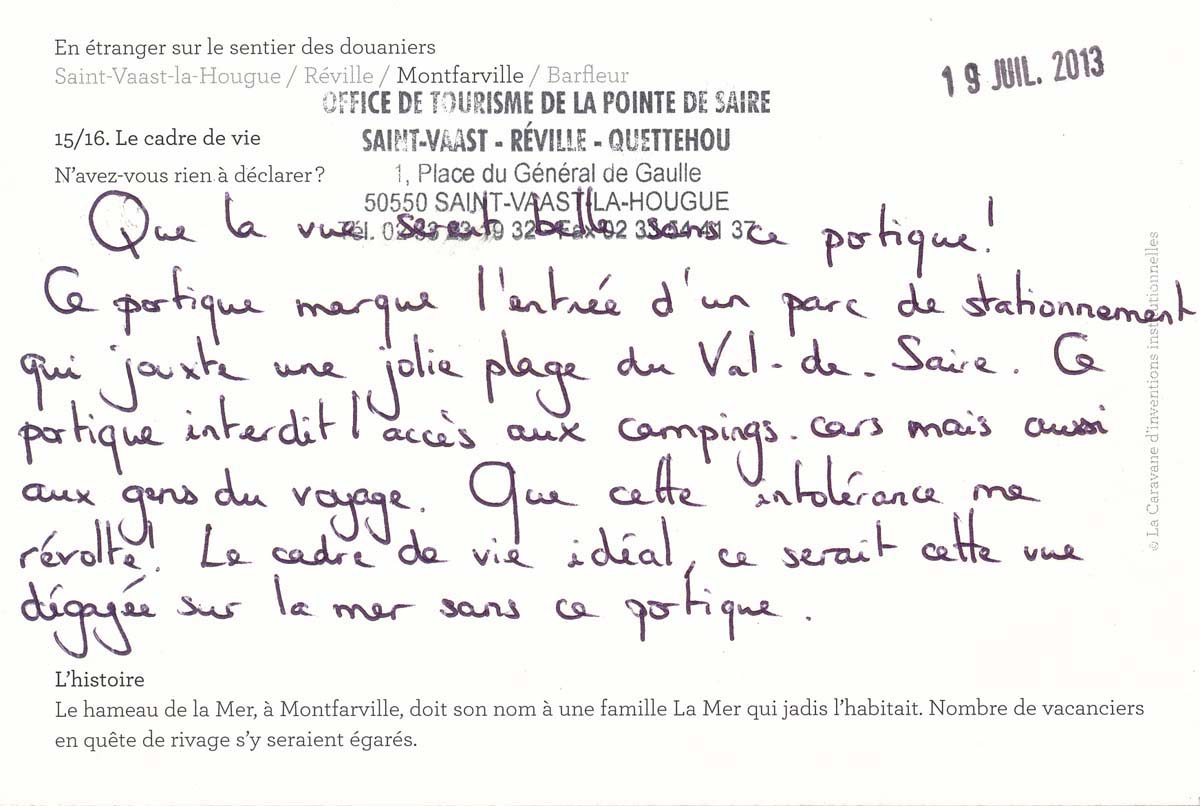 En étranger sur le sentier des douaniers
Saint-Vaast-la-Hougue / Réville / Montfarville / Barfleur
19 JUIL. 2013
OFFICE DE TOURISME DE LA POINTE DE SAIRE
SAINT-VAAST - RÉVILLE - QUETTEHOU
1, Place du Général de Gaulle
50550 SAINT-VAAST-LA-HOUGUE
Tél. 02 33 23 19 32 - Fax 02 33 54 41 37
15/16. Le cadre de vie
N'avez-vous rien à déclarer ?
Que la vue serait belle sans ce portique !
Ce portique marque l'entrée d'un parc de stationnement
qui jouxte une jolie plage du Val-de-Saire. Ce
portique interdit l'accès aux campings-cars mais aussi
aux gens du voyage. Que cette intolérance me
révolte ! Le cadre de vie idéal, ce serait cette vue
dégagée sur la mer sans ce portique.
L'histoire
Le hameau de la Mer, à Montfarville, doit son nom à une famille La Mer qui jadis l'habitait. Nombre de vacanciers
en quête de rivage s'y seraient égarés.
© La Caravane d'inventions institutionnelles